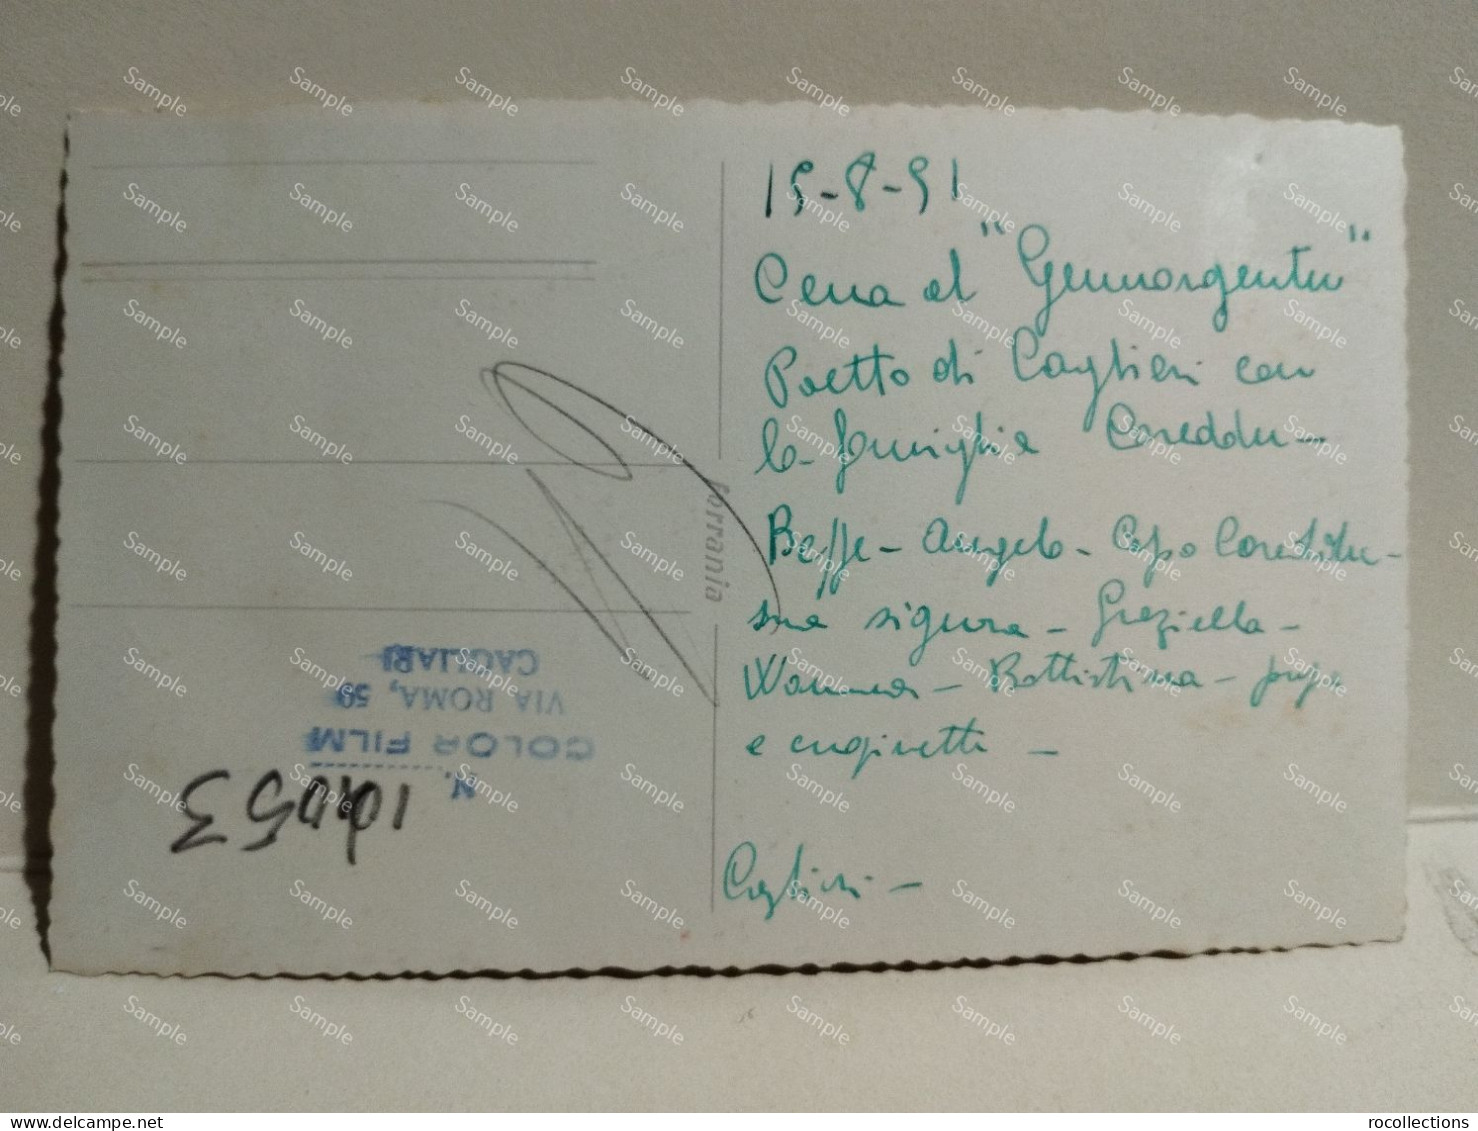 15-8-51
Cena al "Gennargentu"
Poetto di Cagliari con
la famiglia Coreddu -
Beppe - Angelo - Capo Coreddu -
sua signora - Graziella -
Wanna - Battistina -
e cuginetti -
Cagliari -
ferrania
N.
COLOR FILM
VIA ROMA, 59
CAGLIARI
rocollections